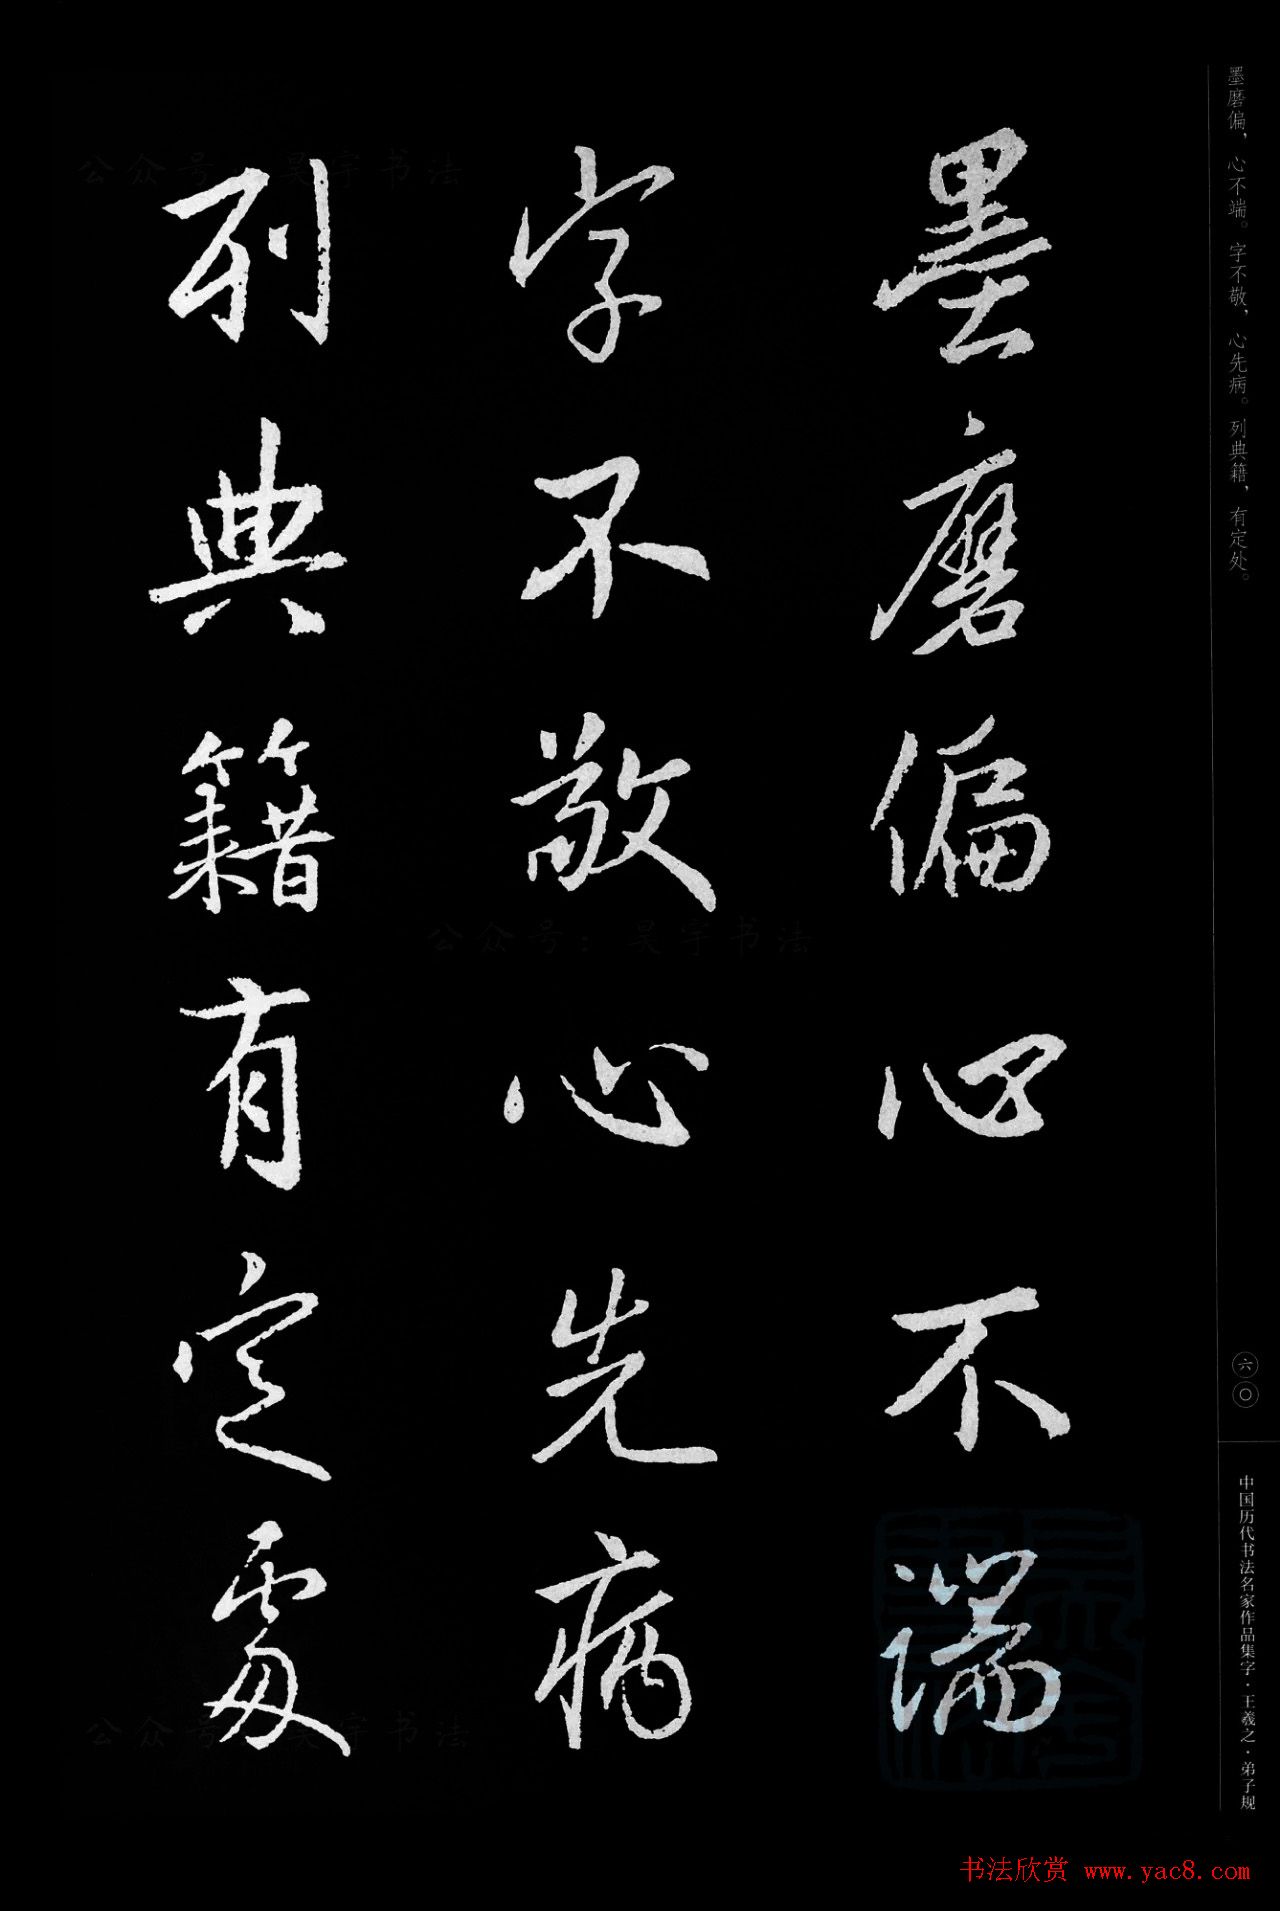 墨磨偏，心不端。字不敬，心先病。列典籍，有定处。
墨磨偏心不端
字不敬心先病
列典籍有定處
六〇
中国历代书法名家作品集字·王羲之·弟子规
公众号：昊宇书法
公众号：昊宇书法
公众号：昊宇书法
书法欣赏 www.yac8.com